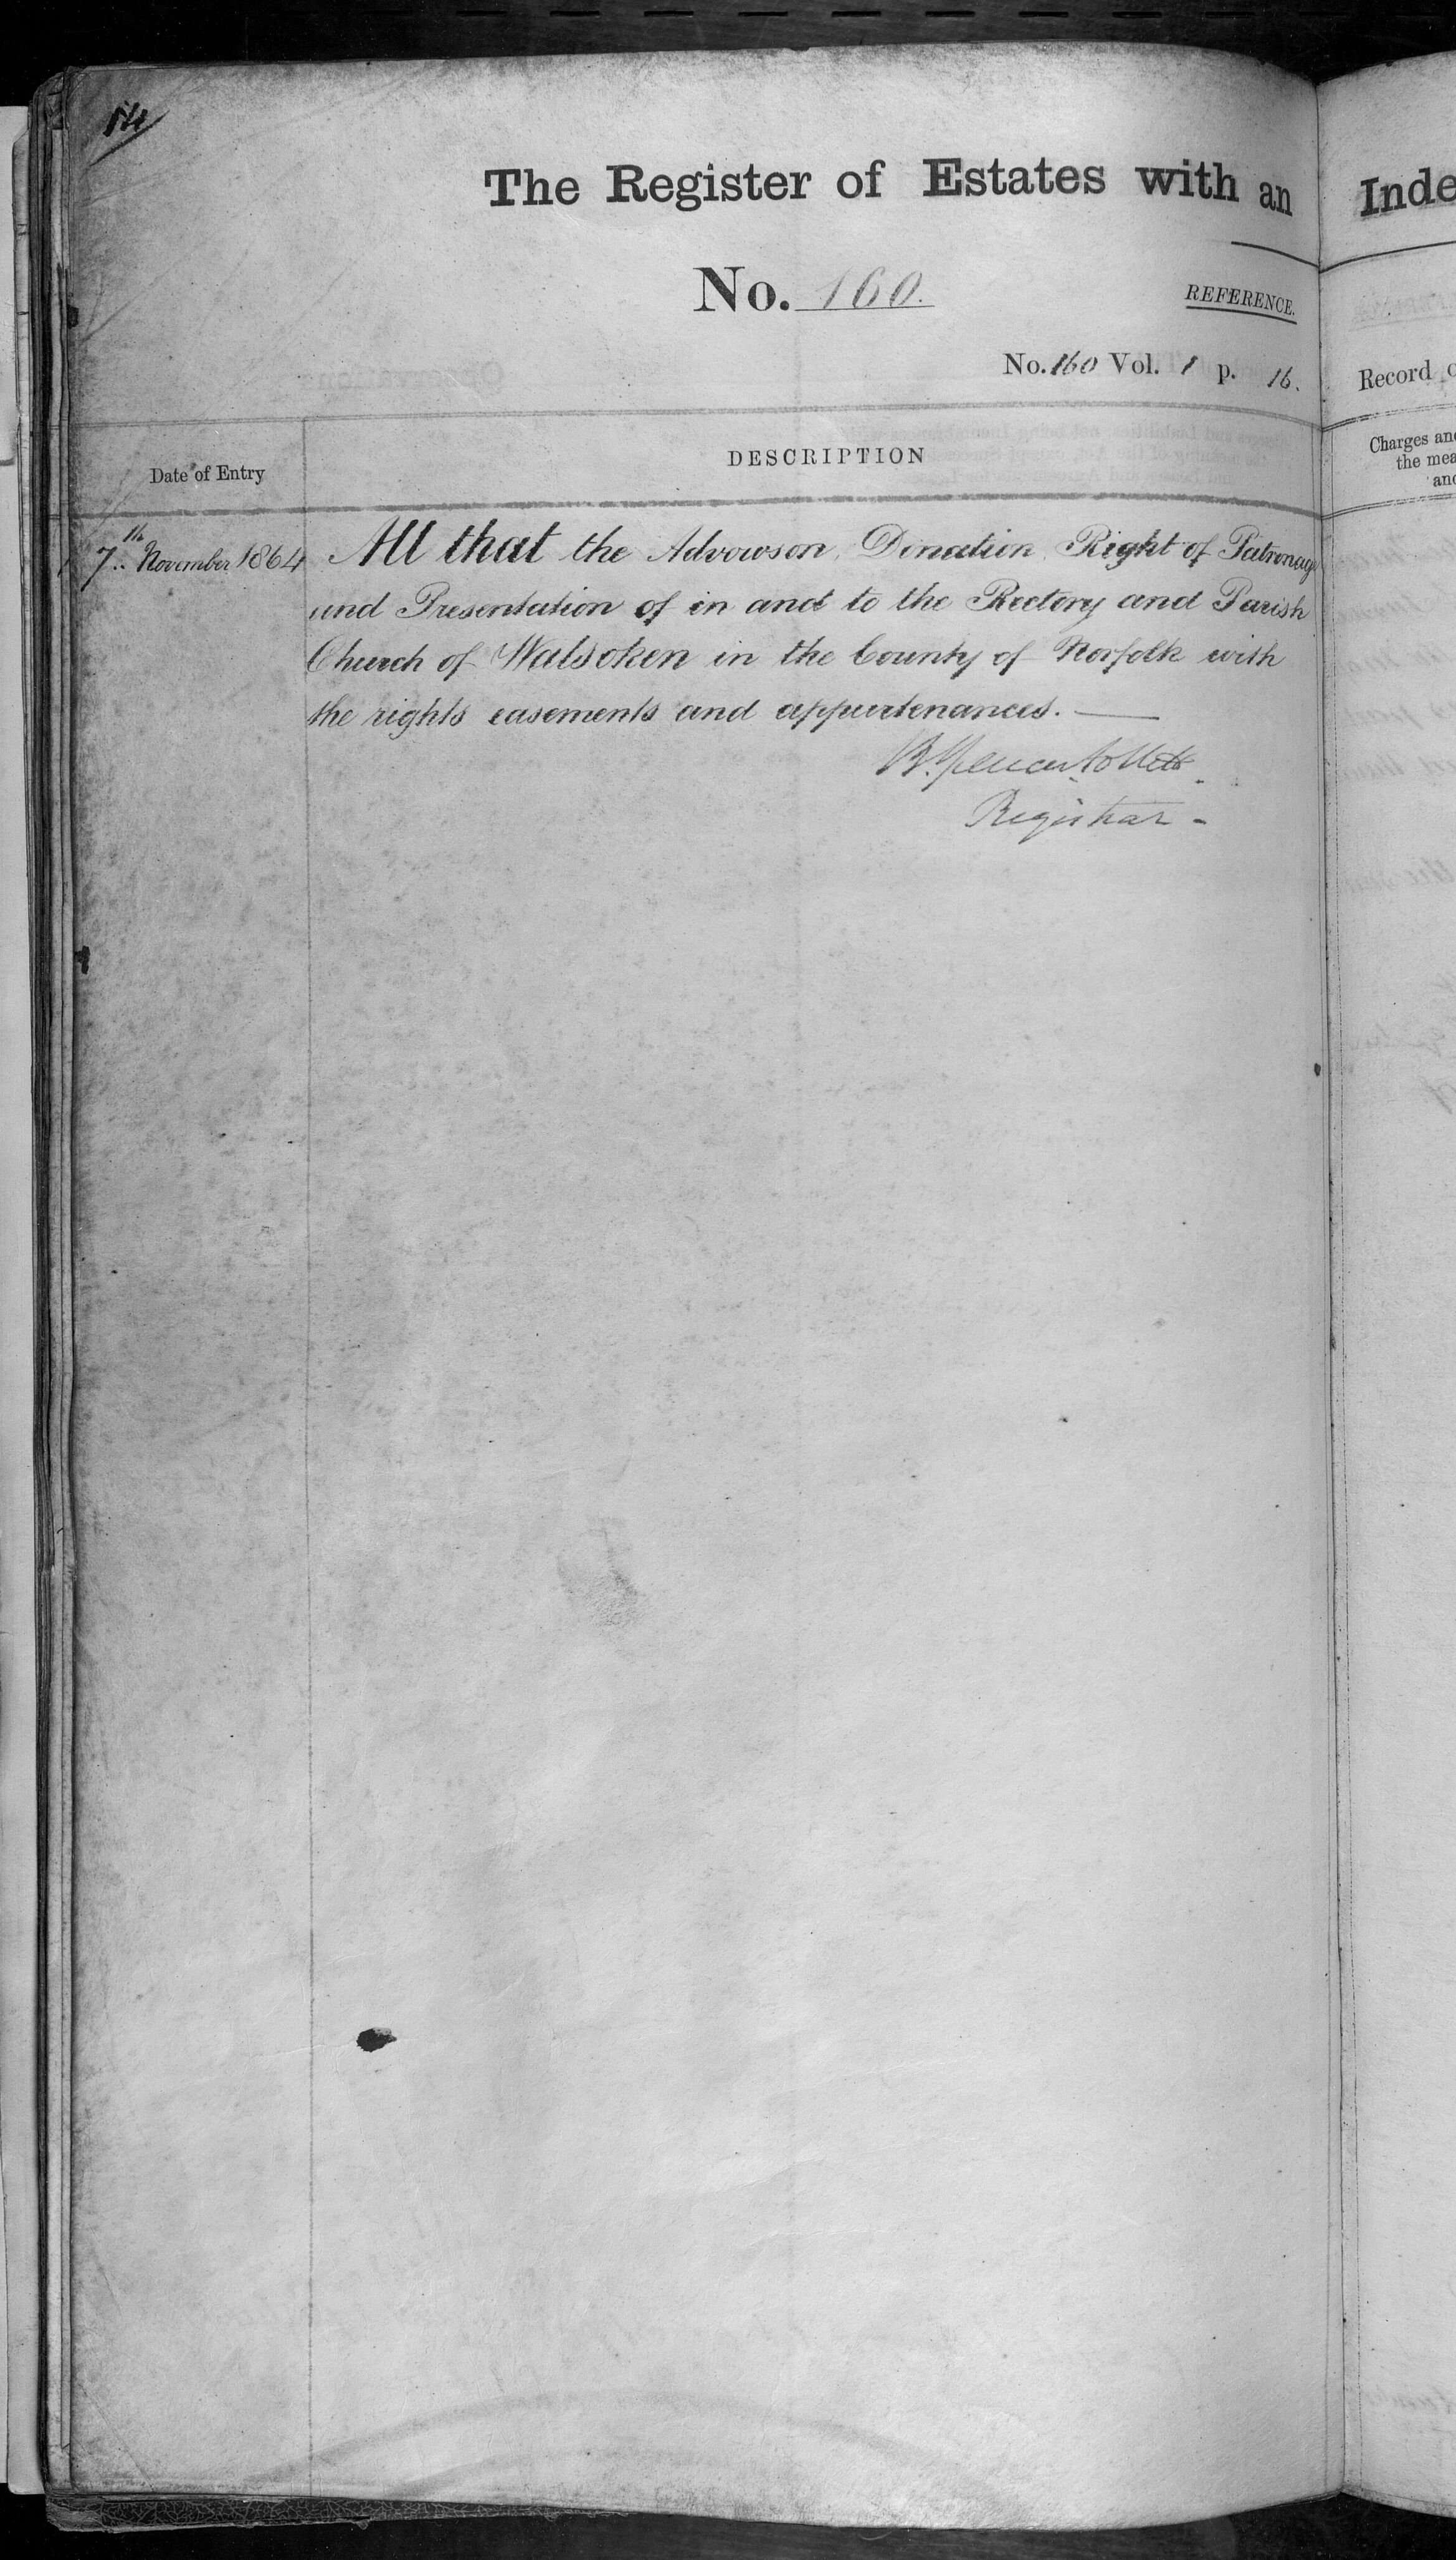 The Register of Estates with an
Inde
No. 160.
REFERENCE.
No. 160 Vol. 1 p. 16.
Record o
Date of Entry
DESCRIPTION
Charges and
the mea
and
7th November 1864
All that the Advowson, Donation Right of Patronage
and Presentation of in and to the Rectory and Parish
Church of Walsoken in the County of Norfolk with
the rights easements and appurtenances.
Registrar